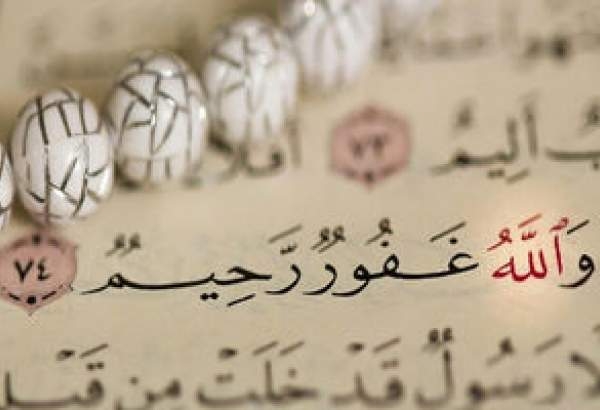 أَلِيمٌ ٧٣ أَفَلَا
وَٱللَّهُ غَفُورٌ رَّحِيمٌ ٧٤
رَسُولٌ قَدْ خَلَتْ مِن